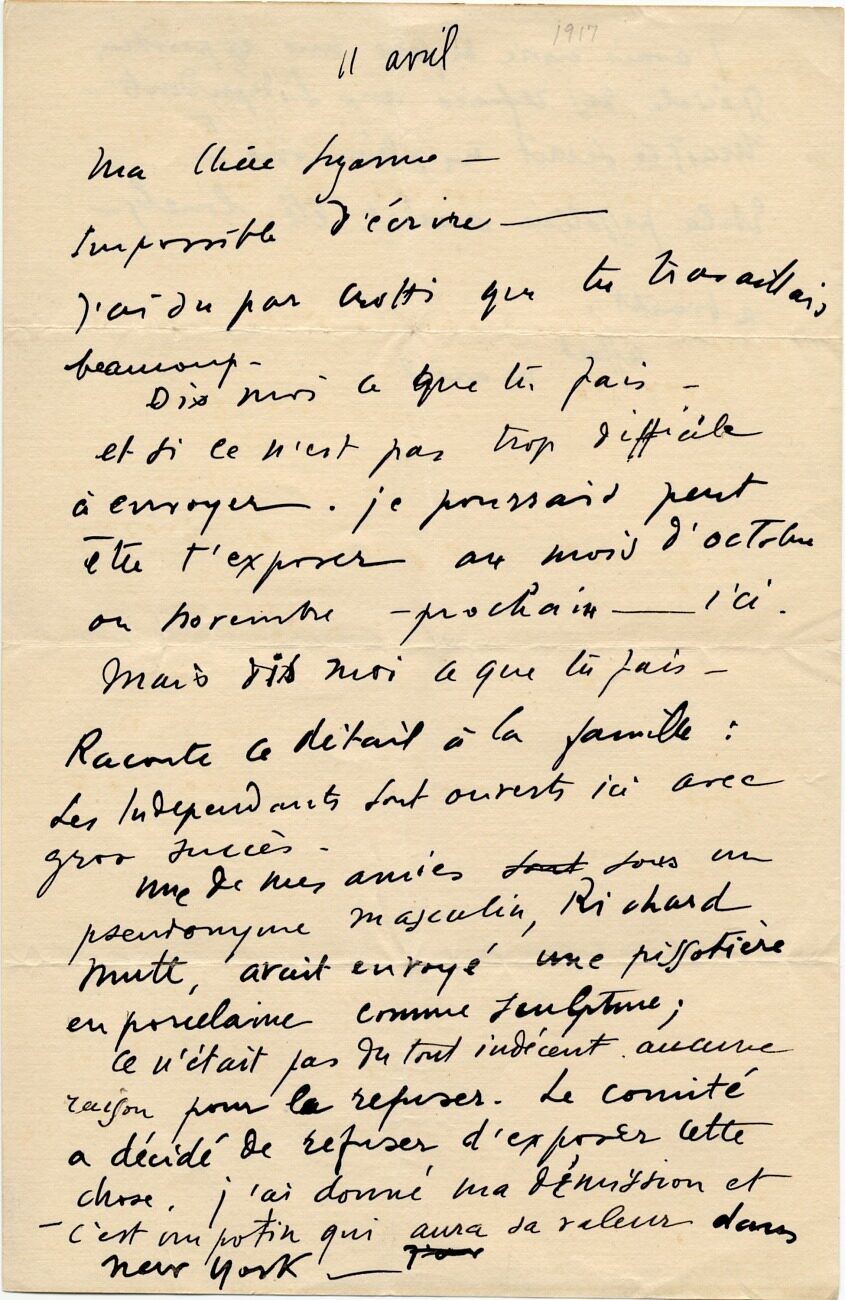 11 avril
1917
Ma chère Suzanne —
Impossible d'écrire —
J'ai su par Crotti que tu travaillais
beaucoup -
Dis moi ce que tu fais -
et si ce n'est pas trop difficile
à envoyer. je pourrais peut
être t'exposer au mois d'octobre
ou novembre - prochain — ici.
Mais dis moi ce que tu fais -
Raconte ce détail à la famille :
Les Indépendants sont ouverts ici avec
gros succès -
Une de mes amies sont sous un
pseudonyme masculin, Richard
Mutt, avait envoyé une pissotière
en porcelaine comme sculpture;
Ce n'était pas du tout indécent. aucune
raison pour la refuser. Le comité
a décidé de refuser d'exposer cette
chose. j'ai donné ma démission et
- C'est un potin qui aura sa valeur dans
New York —